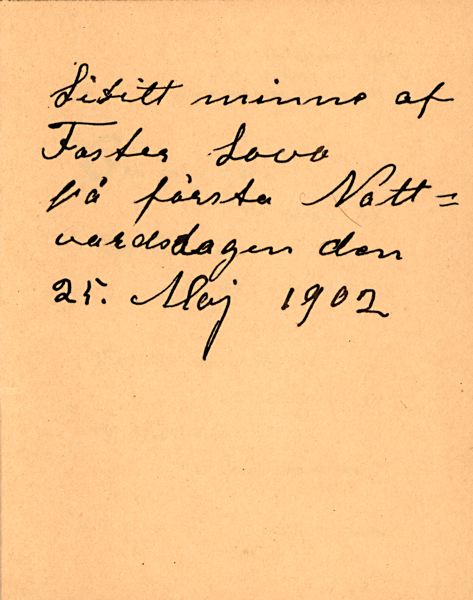 Lititt minne af
Faster Lova
på första Natt=
vardsdagen den
25. Maj 1902